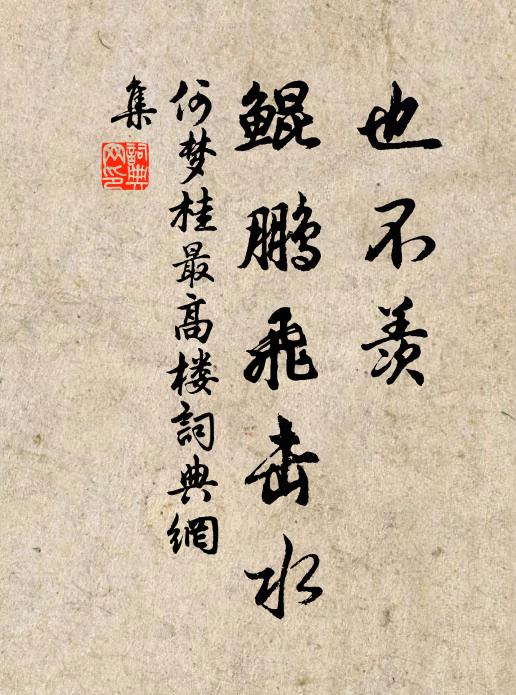 也不羨
鲲鹏飛击水
何梦桂最高楼詞典網
集
詞典网印